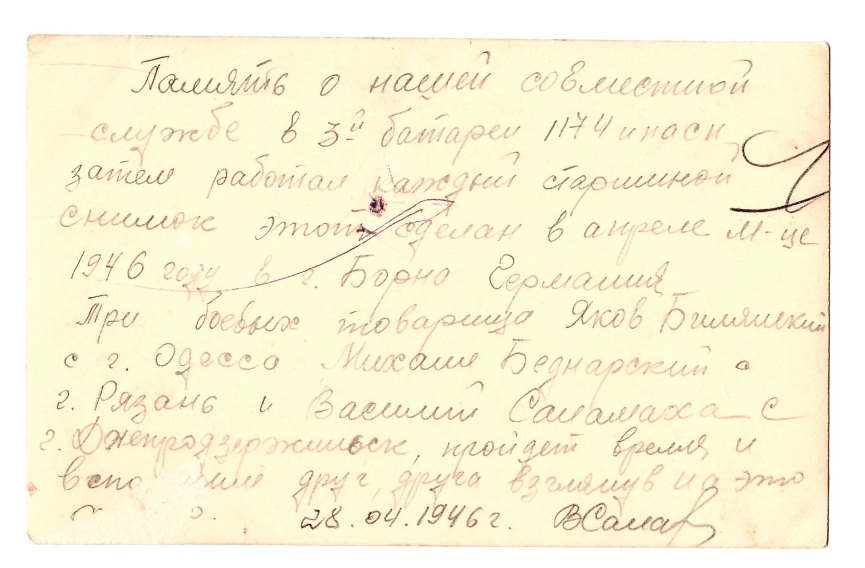 Память о нашей совместной
службе в 3й батареи 1174
затем работал каждый старшиной
снимок этот сделан в апреле м-це
1946 году в г. Борно Германия
Три боевых товарища Яков
с г. Одесса Михаил Беднарский с
г. Рязань и Василий Саламаха с
г. Днепродзержинск, пройдет время и
друг, друга взглянув на это
28.04.1946 г.